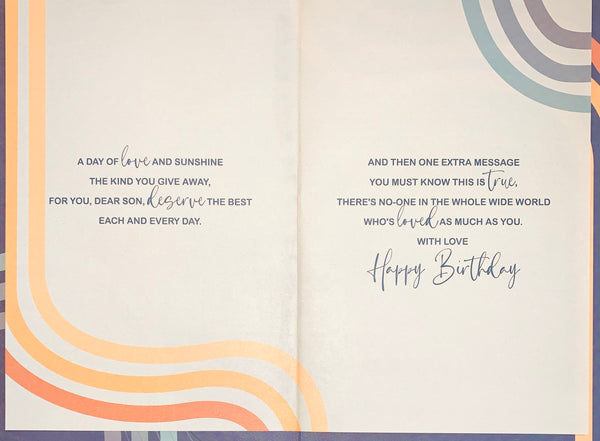 A DAY OF love AND SUNSHINE
THE KIND YOU GIVE AWAY,
FOR YOU, DEAR SON, deserve THE BEST
EACH AND EVERY DAY.
AND THEN ONE EXTRA MESSAGE
YOU MUST KNOW THIS IS true,
THERE'S NO-ONE IN THE WHOLE WIDE WORLD
WHO'S loved AS MUCH AS YOU.
WITH LOVE
Happy Birthday